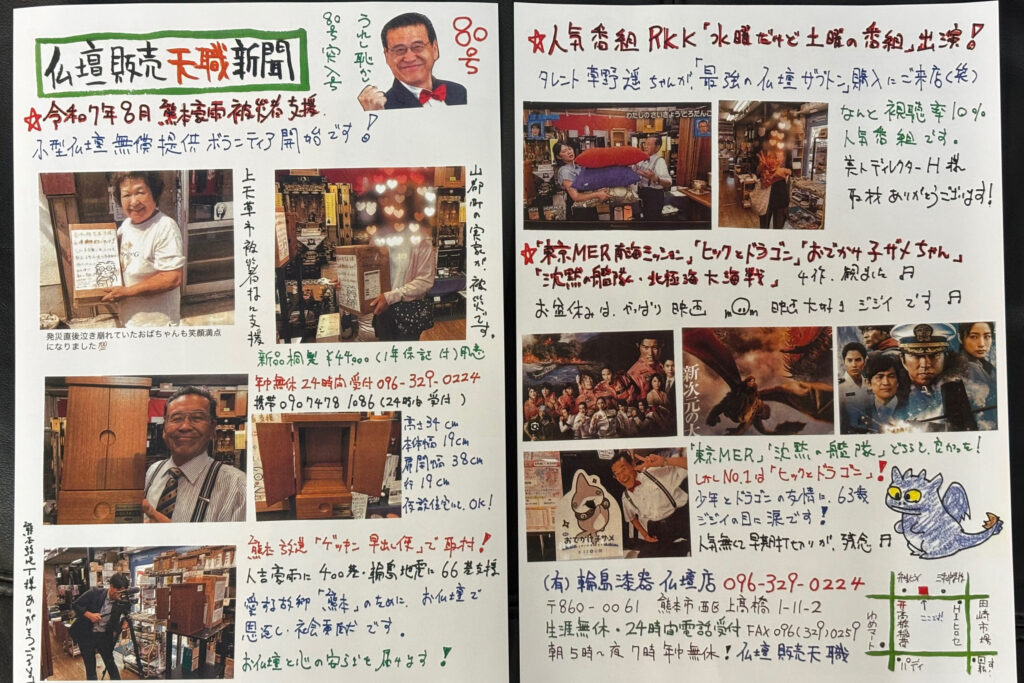 仏壇販売天職新聞
80号突入号
うれし恥ずかし
80号
☆令和7年8月 熊本豪雨被災者支援
小型仏壇無償提供ボランティア開始です!
上天草市被災者様に支援
山都町の実家が、被災です。
発災直後泣き崩れていたおばちゃんも笑顔満点
になりました💯
新品桐製¥44,000(1年保証付)用意
年中無休24時間受付096-329-0224
携帯09074781086(24時間受付)
高さ34cm
本体幅19cm
扉開幅38cm
行19cm
仮設住宅にOK!
熊本放送「ゲツキン早出し便」で取材!
人吉豪雨に400基・輪島地震に66基支援
愛する故郷「熊本」のために、お仏壇で
恩返し・社会貢献です。
お仏壇と心の安らぎを届けます!
☆人気番組RKK「水曜だけど土曜の番組」出演!
タレント草野遥ちゃんが、「最強の仏壇ザブトン」購入にご来店(笑)
わたしのさいきょうどろだんご
なんと視聴率10%
人気番組です。
美人ディレクターH様
取材ありがとうございます!
☆「東京MER南海ミッション」「ヒックとドラゴン」「おでかけ子ザメちゃん」
「沈黙の艦隊・北極海大海戦」4作、観ました♬
お盆休みは、やっぱり映画 映画大好きジジイです♬
新次元の
おでかけ子ザメ
「東京MER」「沈黙の艦隊」どちらも良かった!
しかしNo.1は「ヒックとドラゴン」!
少年とドラゴンの友情に、63歳
ジジイの目に涙です!
人気無く早期打セ切りが、残念
(有)輪島漆器仏壇店 096-329-0224
〒860-0061 熊本市西区上高橋1-11-2
生涯無休・24時間電話受付 FAX096(329)0259
朝5時〜夜7時年中無休!仏壇販売天職
ここだよ!
高橋稲荷
HIヒロセ
田崎市場
ゆめマート